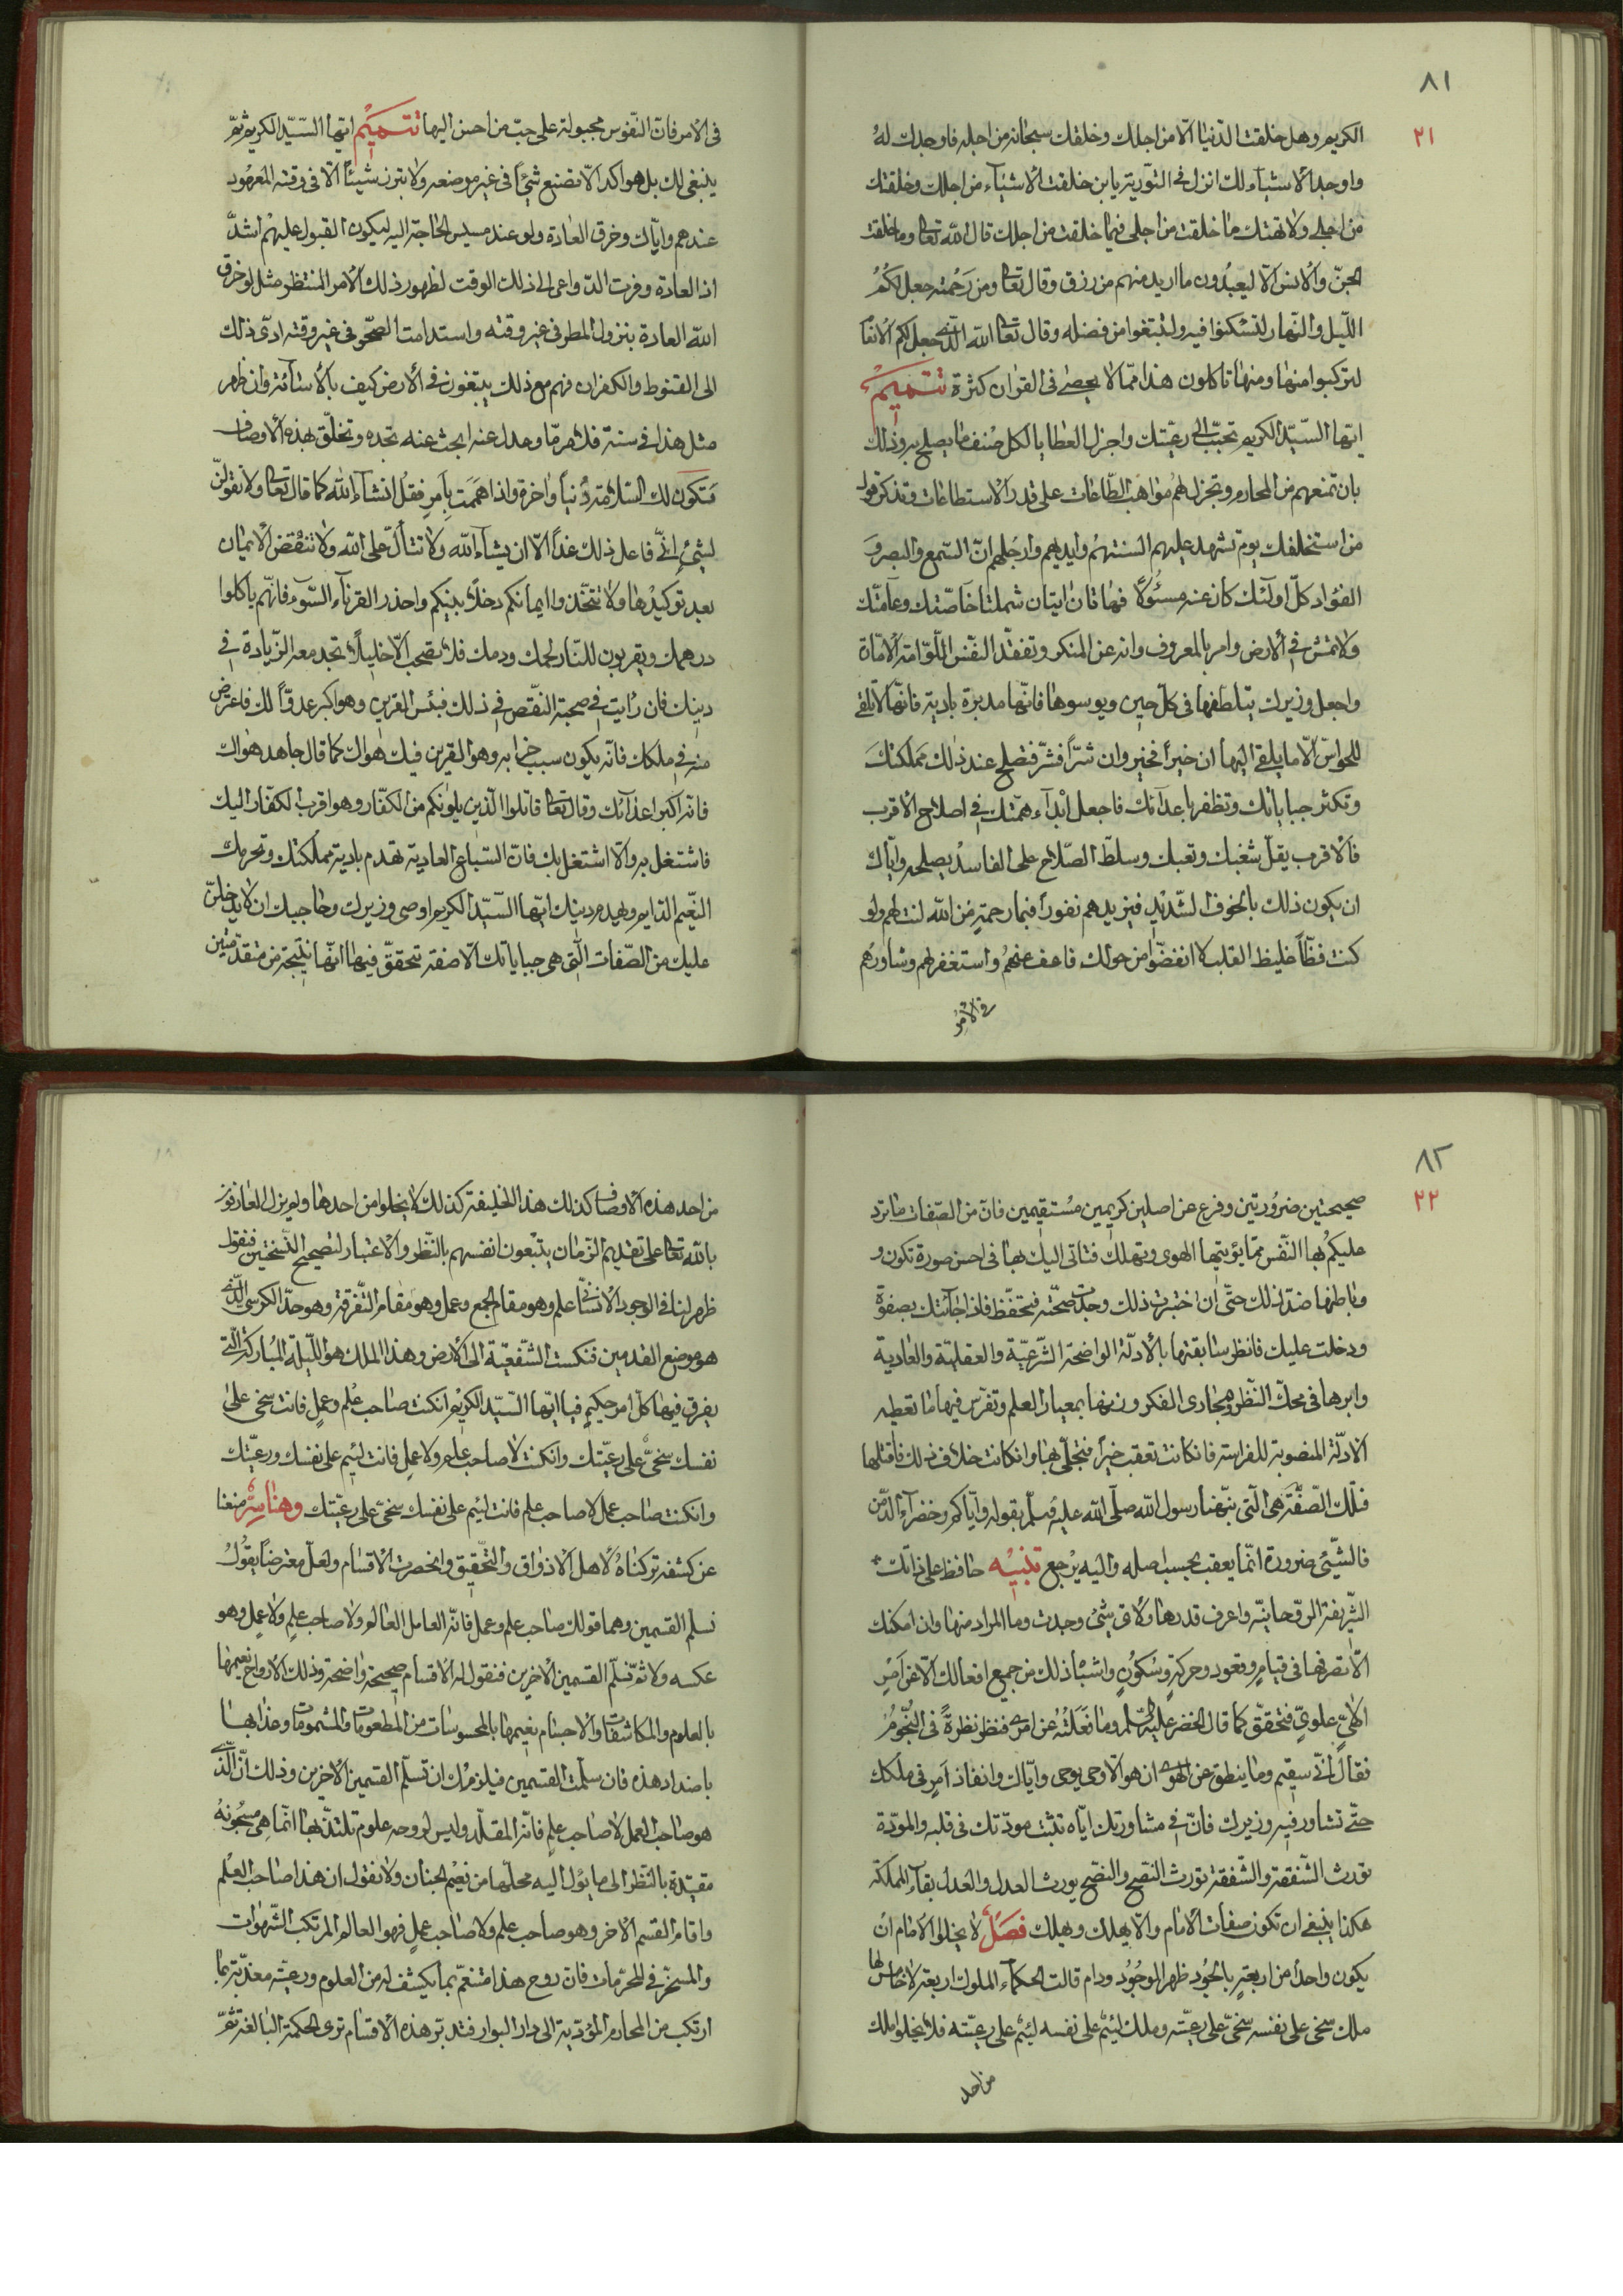 ٨١
٢١
الكريم وهل خلقت الدّنيا الّا من اجلك وخلقك سبحانه من اجله فاوجدك لهُ
واوجد الاشياء لك انزل فى التّورية يابن خلقت الاشيآء من اجلك وخلقتك
من اجلى ولا تهتك ما خلقت من اجلى فيما خلقت من اجلك قال الله تعا وما خلقت
الجنّ والانس الّا ليعبُدُون ما اريد منهم من رزق وقال تعا ومن رَحْمته جعل لكُمُ
اللّيل والنّهار لتسْكنوا فيه ولتبتغوا من فضله وقال تعا الله الّذى جعل لكم الانعا
لتركبوا منها ومنها تاكلون هذا ممّا لا يحصى فى القرآن كثرة تتميمٌ
ايّها السّيّد الكريم تحبّب الى رعيّتك واجزل العطايا لكل صنف ما يصلح به وذلك
بان تمنعهم من المحارم وتجزل لهُم مواهب الطّاعات على قدر الاستطاعات وتذكر قول
من استخلفك يوم تشهد عليهم السنتهُم وايديهم وارجلهم انّ السّمع والبصر وَ
الفؤاد كلّ اولٓئك كان عنه مسئُولًا فهاتان ايتان شملتا خآصّتك وعآمّتك
ولا تمش فى الارض وامر بالمعروف وانه عن المنكر وتفقّد النفس اللّوّامة الامّارة
واجعل وزيرك يتلطّفها فى كلّ حينٍ ويوسوها فانّها مدبرة باديه فانّها لا تلقى
للحواسّ الّا ما يلقى اليها ان خيراً فخير وان شرّاً فشرّ فتصلح عند ذلك مَملكتكَ
وتكثر جباياتك وتظفر باعدآئك فاجعل ابْدآء همّتك فى اصلاح الاقرب
فالاقرب يقلّ شغبك وتعبك وسلّط الصّلاح على الفاسد يصلحه وايّاك
ان يكون ذلك بالخوف الشّديد فيزيدهم نفوراً فبما رحمةٍ من الله لنت لهم ولو
كنت فظّاً غليظ القلب لانفضّوا من حولك فاعف عنهُم واستغفر لهم وشاورهُم
فى الامْر
فى الامر فانّ النّفوس مجبولة على حبّ من احسن اليها تتميْمٌ ايّها السّيّد الكريم ثمّ
ينبغى لك بل هو اكد الّا تصنع شيْئاً فى غير موضعه ولا تبرز شيئاً الّا فى وقته المَعهُود
عندهم وايّاك وخرق العادة ولو عند مسيس الحاجة اليه ليكون القبول عليهْم اشدّ
اذ العادة وفرت الدّواعى الى ذلك الوقت لظهور ذلك الامر المنتظر مثل لو خرق
الله العادة بنزول المطر فى غير وقته واستدامت الصّحو فى غير وقته ادّى ذلك
الى القنوط والكفران فهم مع ذلك يبتغون فى الارض كيف بالاستآئة وان ظهر
مثل هذا فى سنة فلامرٍ مّا وعدل عنه ابحث عنه تجده وتخلّق بهذه الاوصاف
فتكون لك السّلامة دُنياً واخرة واذا هَمَمت بِامرٍ فقل انشآء الله كما قال تعا ولا تقولنّ
لشىْءٍ انّى فاعل ذلك غداً الّا ان يشآء الله ولا تتألّ على الله ولا تنقض الايمان
بعد توكيدها ولا تتخذوا ايمانكم دخلاً بينكم واحذر القرنآء السّوء فانّهم ياكلوا
درهمك ويقربون للنّار لحمك ودمك فلا تصحب الّا خليلاً تجد معه الزّيادة فى
دينك فان رايت فى صحبة النقص فى ذلك فبئس القرين وهو اكبر عدوّاً لك فاعرض
عنه فى ملكك فانّه يكون سبب خرابه وهو القرين فيك هواك كما قال جاهد هواك
فانّه اكبر اعدآئك وقال تعا قاتلوا الّذين يلونكم من الكفّار وهو اقرب الكفّار اليك
فاشتغل به والّا اشتغل بك فانّ السّباع العادية تهدم بادية مملكتك وتحرمك
النّعيم الدّايم ويهدم دينك ايّها السّيّد الكريم اوصى وزيرك وحاجبك ان لا يدخلنّ
عليك من الصّفات الّتى هى جباياتك الّا صفة تتحقّق فيها انّها نتيجة من مقدّمتين
٨٢
٢٢
صحيحتين ضرُوريّتين وفرع عن اصلين كريمين مُستقيمين فان من الصّفات ما ترد
عليكم بُها النّفس ممّا يؤيّتها الهوى ويهلك فتاتى اليك بها فى احسن صورة تكون و
وباطنها ضدّ ذلك حتّى ان اختبرت ذلك وجدت صحّته فتحفّظ فاذا جائتك بصفة
ودخلت عليك فانظر سابقتها بالادلّة الواضحة الشّرعيّة والعقليّة والعاديّة
وابرها فى محلّ النّظر ومجارى الفكر وزنها بمعيار العلم وتفرّس فيها ما تعطيه
الادلّة المنصوبة للفراسة فان كانت تعقب خيراً فتجلّى بها وان كانت خلاف ذلك فاقتلها
فتلك الصّفة هى الّتى نبّهنا رسول الله صلّى الله عليه وسلّم بقوله وايّاكم وخضرآء الدّمن
فالشّىْء ضرورة انّما يعقب بحسب اصله واليه يرْجع تنبيْه حافظ على ذاتك
الشّريفة الرّوحانيّة واعرف قدرها ولاىّ شىءٍ وجدت وما المراد منها وان امكنك
الّا تصرفها فى قيامٍ وقعود وحركةٍ وسكونٍ واشباه ذلك من جميع افعالك الّا عن امرٍ
الٰهىٍّ علوىٍّ فتحقّق كما قال الخضر عليه السّلم وما فعلته عن امرى فنظر نظرةً فى النّجُوم
فقال انّى سقيم وما ينطق عن الهوى ان هو الّا وحى يوحى وايّاك وانفاذ امرٍ فى ملكك
حتّى تشاور فيه وزيرك فانّ فى مشاورتك ايّاه تثبت مودّتك فى قلبه والمودّة
تورث الشّفقة والشّفقة تورث النّصح والنّصح يورث العدل والعدل بقآء المملكة
هكذا ينبغى ان تكون صفات الامام والّا يهلك ويهلك فصلٌ لا يخلوا الامام ان
يكون واحداً من اربعةٍ بالجُود ظهر الوجُود ودام قالت الحكمآء الملوك اربعة لا خامس لها
ملك سخى على نفسه سخىّ على رعيّته وملك لئيمٌ على نفسه لئيم على رعيّته فلا يخلو ملك
من احد
من احد هذه الاوصاف كذلك هذا الخليفة كذلك لا يخلوا من احدها ولم يزل العارفون
بالله تعا على تقديم الزّمان يتبعون انفسهم بالنّظر والاعتبار لتصحيح النّسختين فنقول
ظهر لنا فى الوجود الانسانّى علم وهو مقام الجمع وعمل وهو مقام التّفرقة وهو حدّ الكرسى الّذى
هو موضع القدمين فنكست الشّفعيّة الى الارض وهذا الملك هو اللّيلة المُباركة الّتى
يفرق فيها كلّ امر حكيم فيا ايّها السّيّد الكريْم ان كنت صاحب علمٍ وعملٍ فانت سخى على
نفسك سخىّ على رعيّتك وان كنت لا صاحب علم ولا عملٍ فانت لئيم على نفسك ورعيّتك
وان كنت صاحب عمل لا صاحب علم فانت لئيم على نفسك سخىّ على رعيّتك وهنا سِرٌّ منعنا
عن كشفه تركناهُ لاهل الاذواق والتّحقيق وانحصرت الاقسام ولعلّ معترضاً يقُول
نسلّم القسمين وهما قولك صاحب علم وعمل فانّه العامل العالم ولا صاحب علمٍ ولا عمل وهو
عكسه ولا ثمّ تسلّم القسمين الاخرين فنقول له الاقسام صحيحة واضحة وذلك الارواح نعيمها
بالعلوم والمكاشفات والاجسام نعيمها بالمحسوسات من المطعومات والمشمومات وعذابها
باضداد هذه فان سلّمت القسمين فيلزمُك ان تسلّم القسمين الاخرين وذلك انّ الّذى
هو صاحب العمل لا صاحب علمٍ فانّه المقلّد وليس لروحه علوم تلتذّ بها انّما هى مسجُونة
مقيّدة بالنّظر الى ما يؤل اليه محلّها من نعيْم الجنان ولا نقول ان هذا صاحب العلم
وامّا القسم الاخر وهو صاحب علمٍ ولا صاحب عملٍ فهو العالم المرتكب الشّهوات
والمسخّر فى المحرّمات فانّ روح هذا متنعّم بما يكشف له من العلوم ورعيّته معذّبة بما
ارتكب من المحارم المؤدّية الى دار البوار فتدبّر هذه الاقسام ترى الحكمة البالغة ثمّ